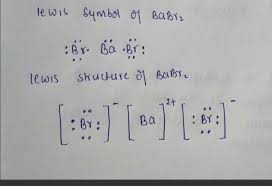 lewis symbol of BaBr₂
:B̤̈r· B̈a ·B̤̈r:
lewis structure of BaBr₂
[:B̤̈r:]⁻ [Ba]²⁺ [:B̤̈r:]⁻